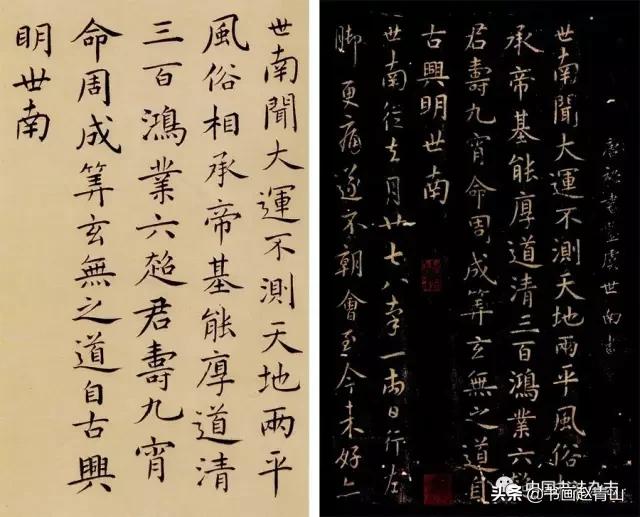 世南聞大運不測天地兩平
風俗相承帝基能厚道清
三百鴻業六超君壽九霄
命周成筭玄無之道自古興
明世南
唐秘書監虞世南書
世南聞大運不測天地兩平風俗
承帝基能厚道清三百鴻業六超
君壽九霄命周成筭玄無之道自
古興明世南
世南從去月廿七八率一兩日行左
脚更痛遂不朝會至今未好亦
中国书法杂志
头条 @书画赵青山